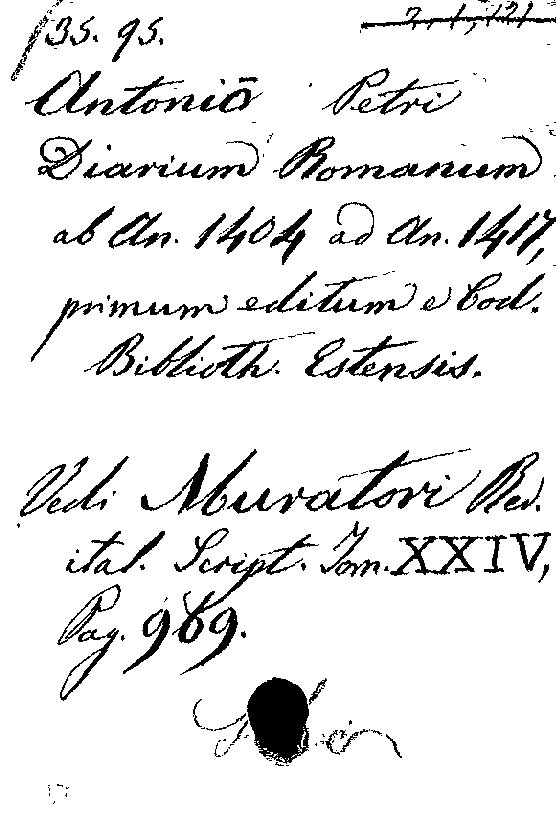 35. 95.
Antoniō Petri
Diarium Romanum
ab An. 1404 ad An. 1417,
primum editum e Cod.
Biblioth. Estensis.
Vedi Muratori Rer.
ital. Script. Tom. XXIV,
Pag. 969.